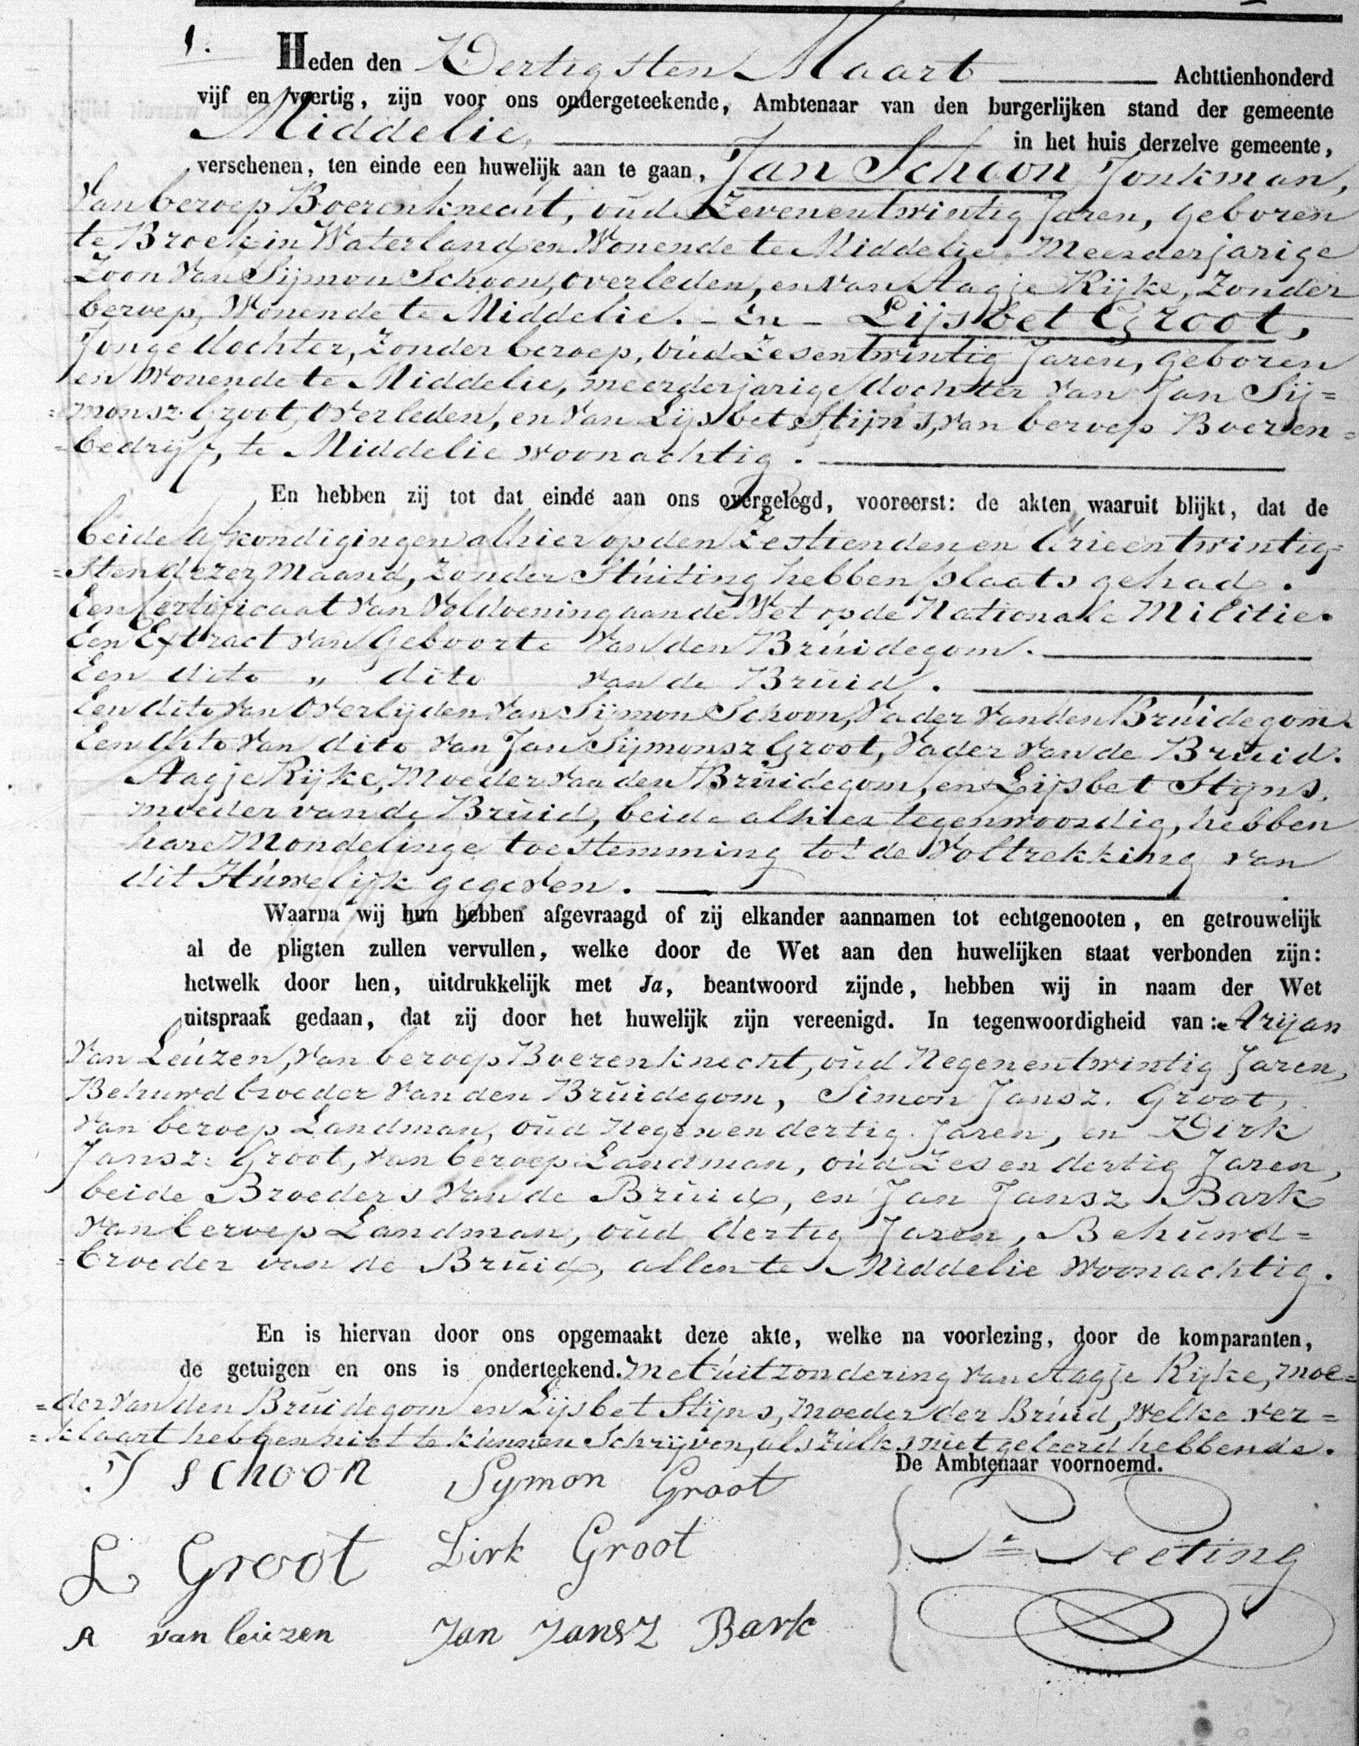 1. Heden den Dertigsten Maart Achttienhonderd
vijf en veertig, zijn voor ons ondergeteekende, Ambtenaar van den burgerlijken stand der gemeente
Middelie, in het huis derzelve gemeente,
verschenen, ten einde een huwelijk aan te gaan, Jan Schoon Jonkman,
van beroep Boerenknecht, oud Zevenentwintig Jaren, geboren
te Broek in Waterland en Wonende te Middelie. Meerderjarige
Zoon van Sijmon Schoon, overleden, en van Aagje Rijke, Zonder
beroep, Wonende te Middelie. – En – Lijsbet Groot,
Jonge dochter, Zonder beroep, oud Zesentwintig Jaren, geboren
en Wonende te Middelie, meerderjarige dochter van Jan Sij=
=monsz. Groot, Overleden, en van Lijsbet Stijns, van beroep Boeren=
=bedrijf, te Middelie woonachtig.
En hebben zij tot dat einde aan ons overgelegd, vooreerst: de akten waaruit blijkt, dat de
beide Afkondigingen alhier op den Zestienden en drieentwintig=
=sten dezer Maand, zonder Stúiting hebben plaats gehad.
Een Certificaat van Voldoening aan de Wet op de Nationale Militie.
Een Extract van Geboorte van den Brúidegom.
Een dito „ dito van de Brúid.
Een dito van Overlijden van Sijmon Schoon, Vader van den Brúidegom.
Een dito van dito van Jan Sijmonsz Groot, Vader van de Brúid.
Aagje Rijke, Moeder van den Brúidegom, en Lijsbet Stijns,
moeder van de Brúid, beide alhier tegenwoordig, hebben
hare Mondelinge toestemming tot de Voltrekking van
dit Húwelijk gegeven.
Waarna wij hun hebben afgevraagd of zij elkander aannamen tot echtgenooten, en getrouwelijk
al de pligten zullen vervullen, welke door de Wet aan den huwelijken staat verbonden zijn:
hetwelk door hen, uitdrukkelijk met Ja, beantwoord zijnde, hebben wij in naam der Wet
uitspraak gedaan, dat zij door het huwelijk zijn vereenigd. In tegenwoordigheid van: Arijan
van Leúzen, van beroep Boerenknecht, oúd Negenentwintig Jaren,
Behuwdbroeder van den Brúidegom, Simon Jansz. Groot,
van beroep Landman, oúd Negenendertig Jaren, en Dirk
Jansz. Groot, van beroep Landman, oúd Zesendertig Jaren,
beide Broeders van de Brúid, en Jan Jansz Bark
van beroep Landman, oúd dertig Jaren, Behuwd=
=broeder van de Brúid, allen te Middelie Woonachtig.
En is hiervan door ons opgemaakt deze akte, welke na voorlezing, door de komparanten,
de getuigen en ons is onderteekend. met úitzondering van Aagje Rijke, moe=
=der van den Brúidegom en Lijsbet Stijns, moeder der Brúid, welke ver=
=klaart hebben niet te kúnnen Schrijven, als zúlks niet geleerd hebbende.
De Ambtenaar voornoemd.
J Schoon Symon Groot
L Groot Dirk Groot Peeting
A van leúzen Jan Jansz Bark